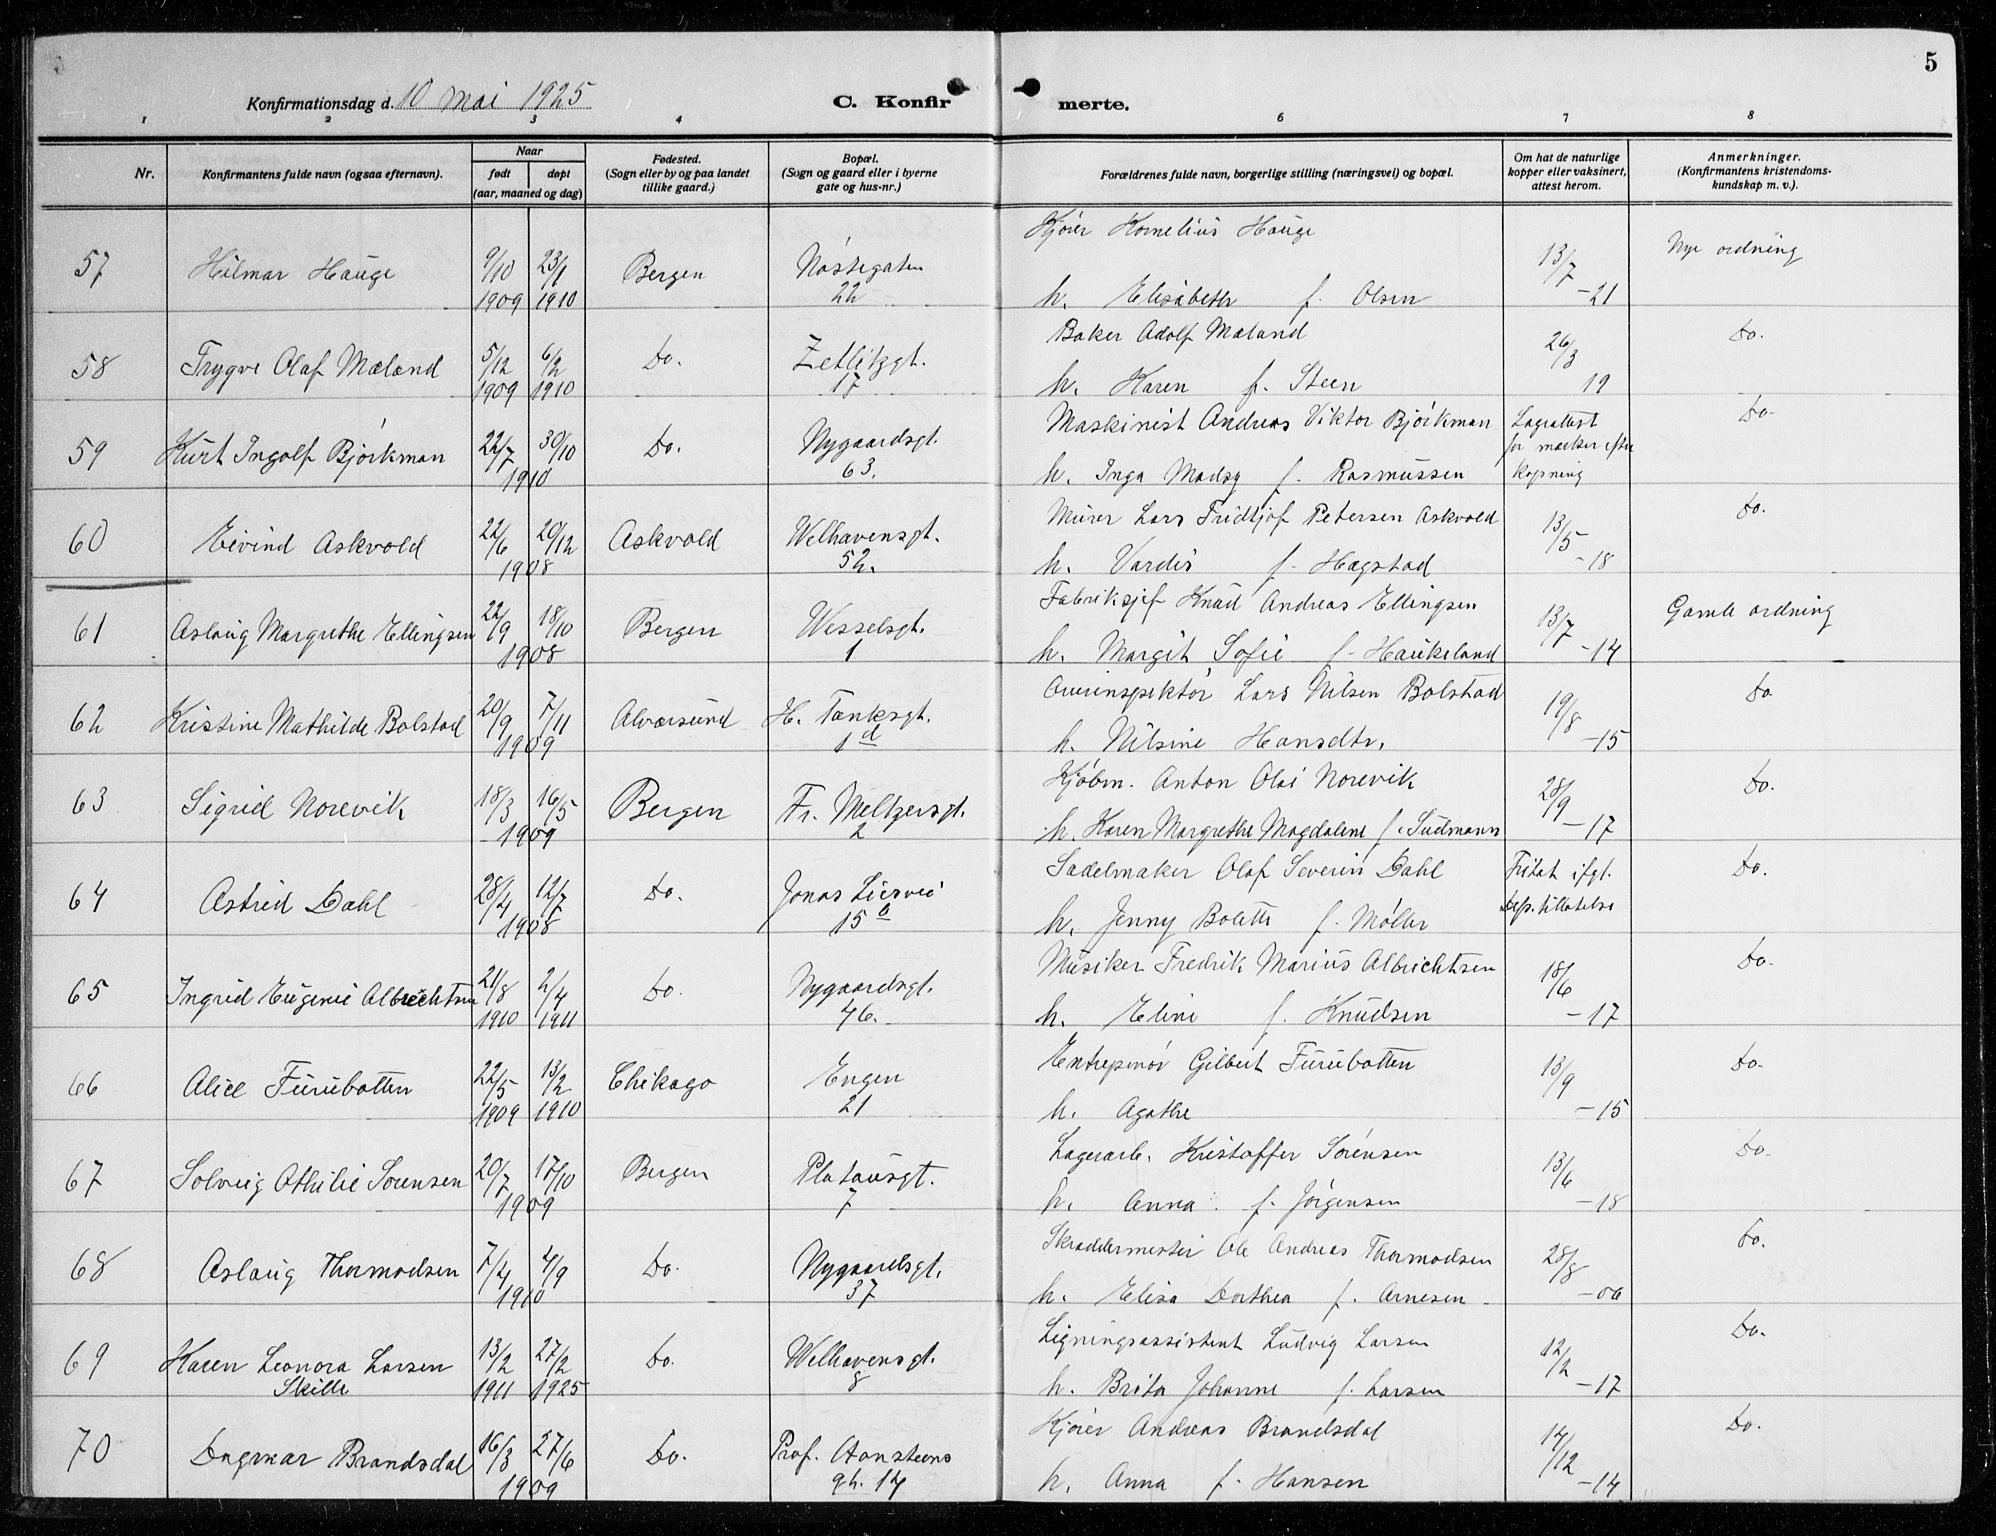 5
Konfirmationsdag d. 10 mai 1925 C. Konfir merte.
1 2 3 4 6 7 8
Nr. Konfirmantens fulde navn (ogsaa efternavn). Naar født døpt (aar, maaned og dag) Fødested. (Sogn eller by og paa landet tillike gaard.) Bopæl. (Sogn og gaard eller i byerne gate og hus-nr.) Forældrenes fulde navn, borgerlige stilling (næringsvei) og bopæl. Om hat de naturlige kopper eller vaksinert, attest herom. Anmerkninger. (Konfirmantens kristendoms-kundskap m. v.).
Kjører Kornelius Hauge
57 Hilmar Hauge 9/10 23/1 Bergen Nøstegaten 13/7 Nye ordning
1909 1910 22 h. Elisabeth f. Olsen -21
Baker Adolf Mæland
58 Trygve Olaf Mæland 5/12 6/2 Do. Zetlitzgt. 26/3 Do.
1909 1910 17 h. Karen f. Steen 19
Maskinist Andreas Viktor Bjørkman Lægattest
59 Kurt Ingolf Bjørkman 22/7 30/10 Do. Nygaardsgt. for mærker efter Do.
1910 63. h. Inga Madsy f. Rasmussen kopning
Murer Lars Fridtjof Petersen Askvold
60 Eivind Askvold 22/6 20/12 Askvold Welhavensgt. 13/5 Do.
1908 52. h. Vardis f. Hagstad -18
Fabriksjef Knud Andreas Ellingsen
61 Aslaug Margrethe Ellingsen 22/9 18/10 Bergen Wesselsgt. 13/7 Gamle ordning
1908 1 h. Margit Sofie f. Haukeland -14
Overinspektør Lars Nilsen Bolstad
62 Kristine Mathilde Bolstad 20/9 7/11 Alversund H. Tanksgt. 19/8 Do
1909 1d h. Nilsine Hansdtr. -15
Kjøbm. Anton Olai Norevik
63 Sigrid Norevik 18/3 16/5 Bergen Fr. Meltzersgt. 28/9 Do.
1909 2 h. Karen Margrethe Magdalene f. Sudmann -17
Sadelmaker Olaf Severin Dahl Fritat ifgt.
64 Astrid Dahl 28/4 12/7 Do. Jonas Liesvei Dep. tillatelse Do.
1908 15b h. Jenny Bolette f. Møller
Musiker Fredrik Marius Albrichtsen
65 Ingrid Eugenie Albrechtsen 21/8 2/4 Do. Nygaardsgt. 18/6 Do.
1910 1911 46. h. Eline f. Knudsen -17
Entreprenør Gilbert Furubotten
66 Alice Furubotten 22/5 13/2 Chikago Engen 13/9 Do.
1909 1910 21 h. Agathe -15
Lagerarb. Kristoffer Sørensen
67 Solveig Othilie Sørensen 20/7 17/10 Bergen Platousgt. 13/6 Do.
1909 7 h. Anna f. Jørgensen -18
Skræddermester Ole Andreas Thormodsen
68 Aslaug Thormodsen 7/4 4/9 Do. Nygaardsgt. 28/8 Do.
1910 37 h. Elisa Dorthea f. Arnesen
Ligningsassistent Ludvig Larsen
69 Karen Leonora Larsen 13/2 27/2 Do. Welhavensgt. 12/2 Do.
Skille 1911 1925 8 h. Brita Johanne f. Larsen -17
Kjører Andreas Brandsdal
70 Dagmar Brandsdal 16/3 27/6 Do. Prof. Hansteens 14/12 Do.
1909 gt. 14 h. Anna f. Hansen -14